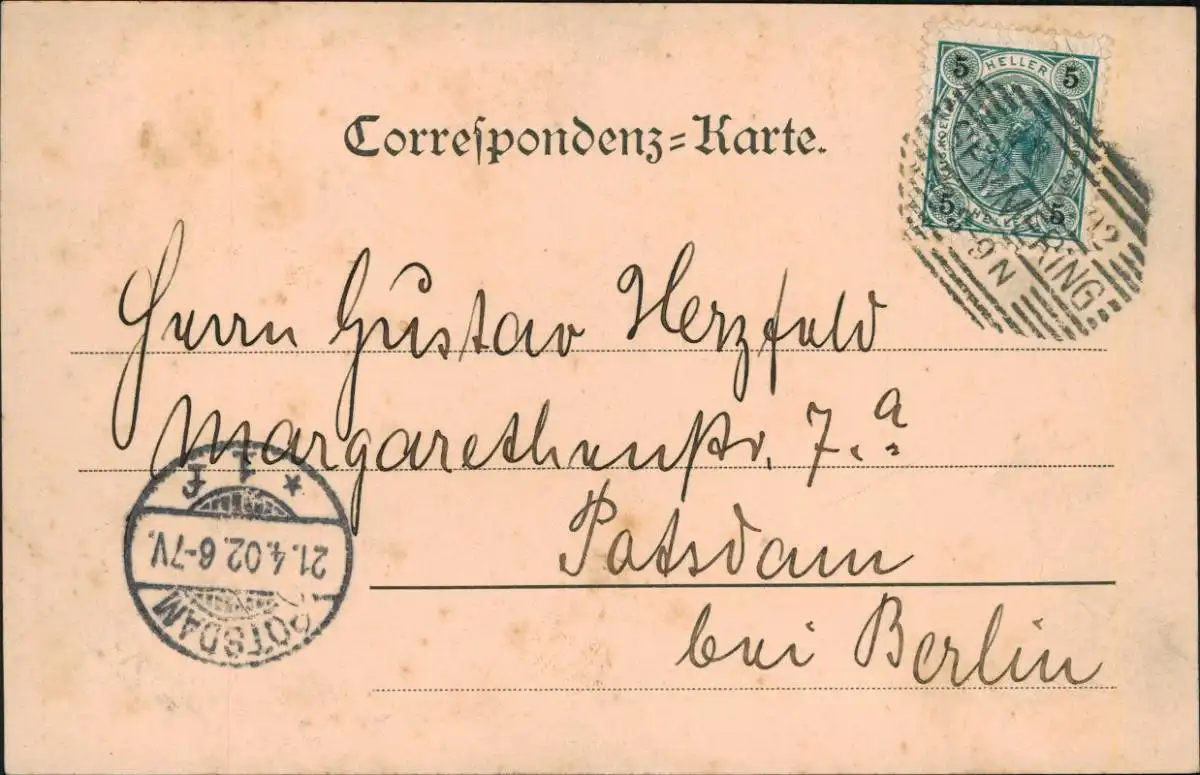 Correſpondenz=Karte.
5 HELLER 5
5 HELLER 5
SEMMERING
02
-9 N
Herrn Gustav Herzfeld
Margarethenstr. 7.a
Potsdam
bei Berlin
* 1 f
21.4.02.6-7V.
POTSDAM